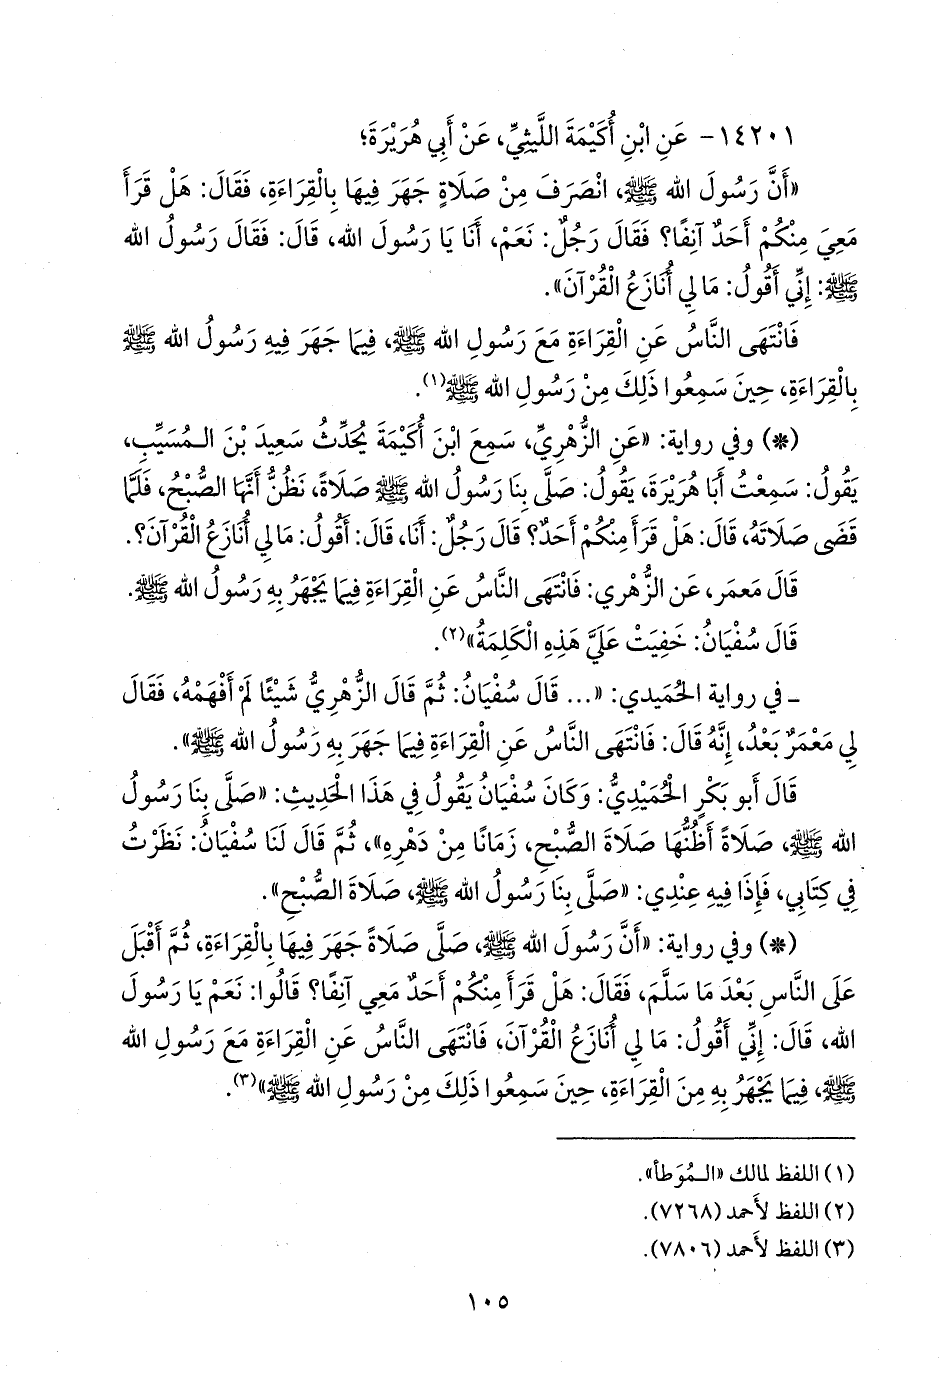 ١٤٢٠١- عَنِ ابْنِ أُكَيْمَةَ اللَّيْثِيِّ، عَنْ أَبِي هُرَيْرَةَ؛
«أَنَّ رَسُولَ الله ﷺ، انْصَرَفَ مِنْ صَلَاةٍ جَهَرَ فِيهَا بِالْقِرَاءَةِ، فَقَالَ: هَلْ قَرَأَ
مَعِيَ مِنْكُمْ أَحَدٌ آنِفًا؟ فَقَالَ رَجُلٌ: نَعَمْ، أَنَا يَا رَسُولَ الله، قَالَ: فَقَالَ رَسُولُ الله
ﷺ: إِنِّي أَقُولُ: مَا لِي أُنَازَعُ الْقُرْآنَ».
فَانْتَهَى النَّاسُ عَنِ الْقِرَاءَةِ مَعَ رَسُولِ الله ﷺ، فِيمَا جَهَرَ فِيهِ رَسُولُ الله ﷺ
بِالْقِرَاءَةِ، حِينَ سَمِعُوا ذَلِكَ مِنْ رَسُولِ الله ﷺ(١).
(*) وفي رواية: «عَنِ الزُّهْرِيِّ، سَمِعَ ابْنَ أُكَيْمَةَ يُحَدِّثُ سَعِيدَ بْنَ الـمُسَيِّبِ،
يَقُولُ: سَمِعْتُ أَبَا هُرَيْرَةَ، يَقُولُ: صَلَّى بِنَا رَسُولُ الله ﷺ صَلَاةً، نَظُنُّ أَنَّهَا الصُّبْحُ، فَلَمَّا
قَضَى صَلَاتَهُ، قَالَ: هَلْ قَرَأَ مِنْكُمْ أَحَدٌ؟ قَالَ رَجُلٌ: أَنَا، قَالَ: أَقُولُ: مَا لِي أُنَازَعُ الْقُرْآنَ؟.
قَالَ مَعمَر، عَن الزُّهْري: فَانْتَهَى النَّاسُ عَنِ الْقِرَاءَةِ فِيمَا يَجْهَرُ بِهِ رَسُولُ الله ﷺ.
قَالَ سُفْيَانُ: خَفِيَتْ عَلَيَّ هَذِهِ الْكَلِمَةُ»(٢).
ـ في رواية الحُمَيدي: «... قَالَ سُفْيَانُ: ثُمَّ قَالَ الزُّهْرِيُّ شَيْئًا لَمْ أَفْهَمْهُ، فَقَالَ
لِي مَعْمَرٌ بَعْدُ، إِنَّهُ قَالَ: فَانْتَهَى النَّاسُ عَنِ الْقِرَاءَةِ فِيمَا جَهَرَ بِهِ رَسُولُ الله ﷺ».
قَالَ أَبو بَكْرٍ الحُمَيْدِيُّ: وَكَانَ سُفْيَانُ يَقُولُ فِي هَذَا الحَدِيثِ: «صَلَّى بِنَا رَسُولُ
الله ﷺ، صَلَاةً أَظُنُّهَا صَلَاةَ الصُّبْحِ، زَمَانًا مِنْ دَهْرِهِ»، ثُمَّ قَالَ لَنَا سُفْيَانُ: نَظَرْتُ
فِي كِتَابِي، فَإِذَا فِيهِ عِنْدِي: «صَلَّى بِنَا رَسُولُ الله ﷺ، صَلَاةَ الصُّبْحِ».
(*) وفي رواية: «أَنَّ رَسُولَ الله ﷺ، صَلَّى صَلَاةً جَهَرَ فِيهَا بِالْقِرَاءَةِ، ثُمَّ أَقْبَلَ
عَلَى النَّاسِ بَعْدَ مَا سَلَّمَ، فَقَالَ: هَلْ قَرَأَ مِنْكُمْ أَحَدٌ مَعِي آنِفًا؟ قَالُوا: نَعَمْ يَا رَسُولَ
الله، قَالَ: إِنِّي أَقُولُ: مَا لِي أُنَازَعُ الْقُرْآنَ، فَانْتَهَى النَّاسُ عَنِ الْقِرَاءَةِ مَعَ رَسُولِ الله
ﷺ، فِيمَا يَجْهَرُ بِهِ مِنَ الْقِرَاءَةِ، حِينَ سَمِعُوا ذَلِكَ مِنْ رَسُولِ الله ﷺ»(٣).
(١) اللفظ لمالك «الـمُوَطأ».
(٢) اللفظ لأَحمد (٧٢٦٨).
(٣) اللفظ لأَحمد (٧٨٠٦).
١٠٥